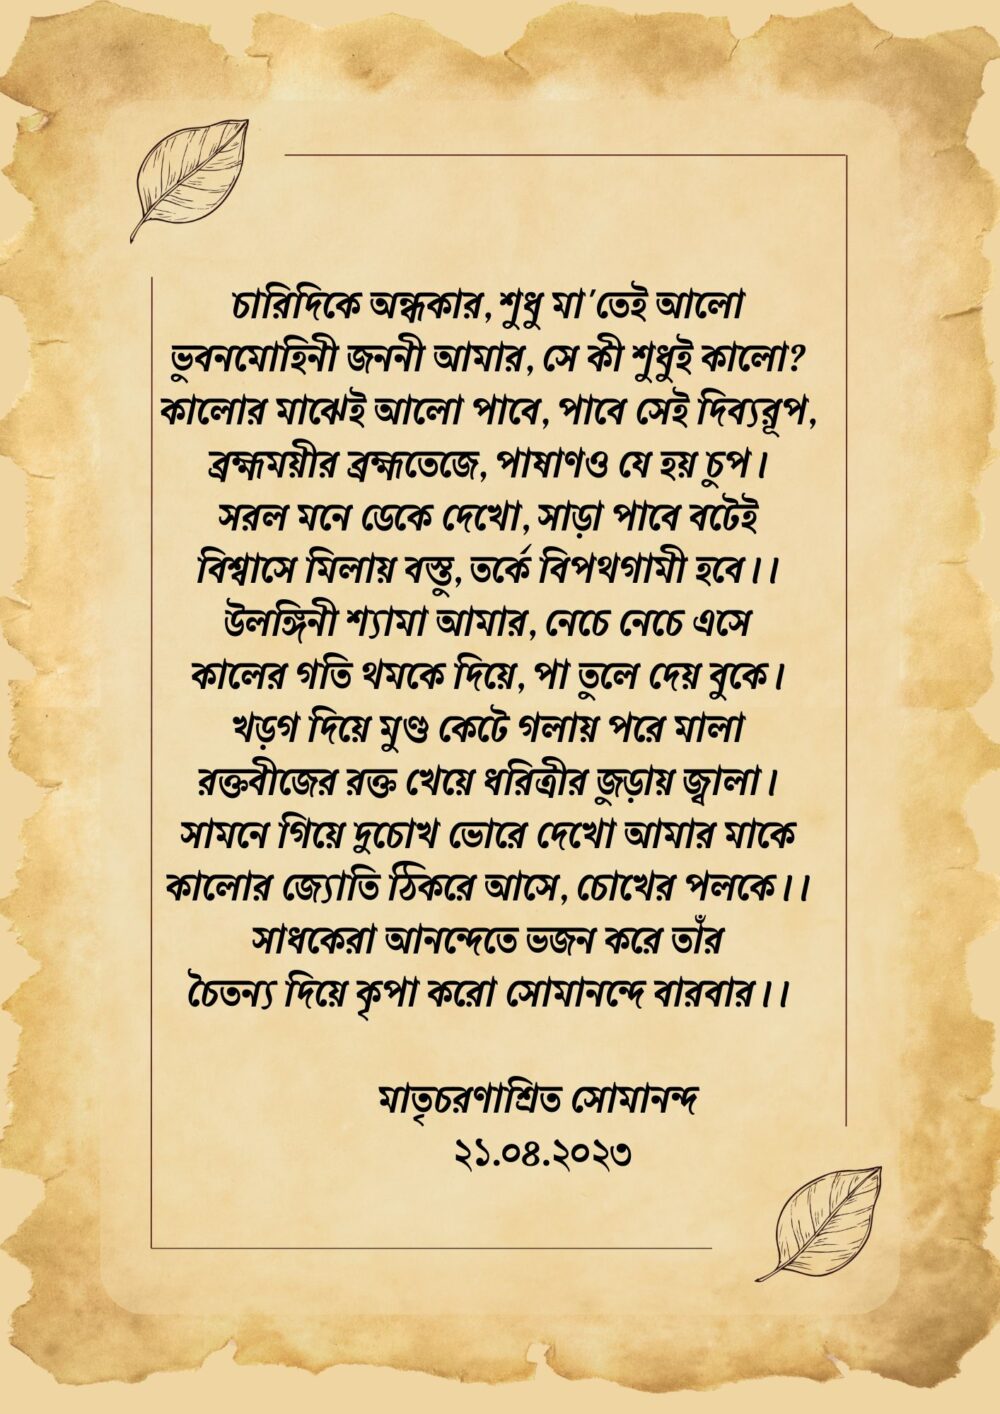 চারিদিকে অন্ধকার, শুধু মা'তেই আলো
ভুবনমোহিনী জননী আমার, সে কী শুধুই কালো?
কালোর মাঝেই আলো পাবে, পাবে সেই দিব্যরূপ,
ব্রহ্মময়ীর ব্রহ্মতেজে, পাষাণও যে হয় চুপ।
সরল মনে ডেকে দেখো, সাড়া পাবে বটেই
বিশ্বাসে মিলায় বস্তু, তর্কে বিপথগামী হবে।।
উলঙ্গিনী শ্যামা আমার, নেচে নেচে এসে
কালের গতি থমকে দিয়ে, পা তুলে দেয় বুকে।
খড়গ দিয়ে মুণ্ড কেটে গলায় পরে মালা
রক্তবীজের রক্ত খেয়ে ধরিত্রীর জুড়ায় জ্বালা।
সামনে গিয়ে দুচোখ ভোরে দেখো আমার মাকে
কালোর জ্যোতি ঠিকরে আসে, চোখের পলকে।।
সাধকেরা আনন্দেতে ভজন করে তাঁর
চৈতন্য দিয়ে কৃপা করো সোমানন্দে বারবার।।
মাতৃচরণাশ্রিত সোমানন্দ
২১.০৪.২০২৩